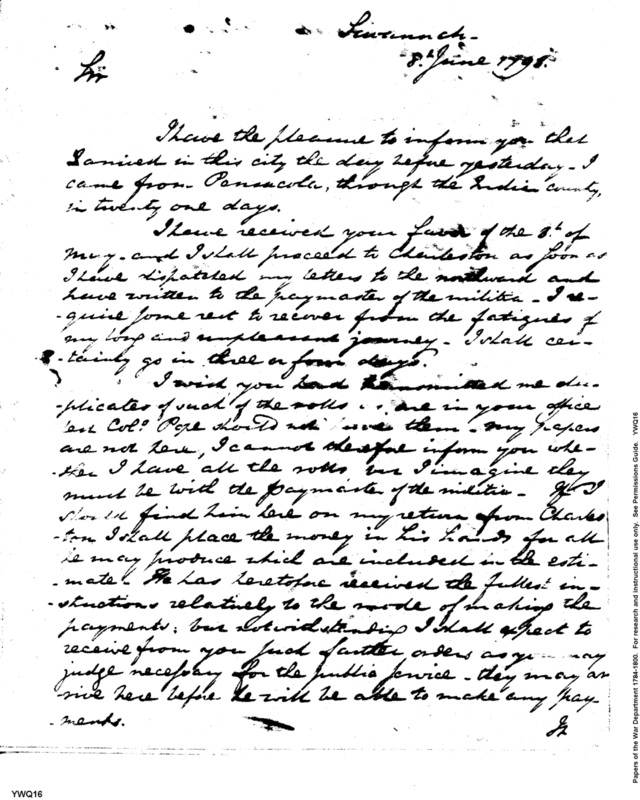 Savannah -
8th June 1798.
Sir
I have the pleasure to inform you that
I arrived in this city the day before yesterday - I
came from Pensacola, through the Indian country,
in twenty one days.
I have received your favor of the 8th of
May - and I shall proceed to Charleston as soon as
I have dispatched my letters to the northward and
have written to the paymaster of the militia - I re-
-quire some rest to recover from the fatigues of
my long and unpleasant journey - I shall cer-
-tainly go in three or four days.
I wish you had transmitted me du-
-plicates of such of the rolls as are in your office
lest Colo. Pope should not have them - my papers
are not here, I cannot therefore inform you whe-
-ther I have all the rolls but I imagine they
must be with the paymaster of the militia - If I
should find him here on my return from Charles
-ton I shall place the money in his hands for all
he may produce which are included in the esti-
-mate - He has heretofore received the fullest in-
-structions relatively to the mode of making the
payments; but notwithstanding I shall expect to
receive from you such further orders as you may
judge necessary for the public service - they may ar
rive here before he will be able to make any pay-
-ments.
Papers of the War Department 1784-1800. For research and instructional use only. See Permissions Guide. YWQ16
YWQ16